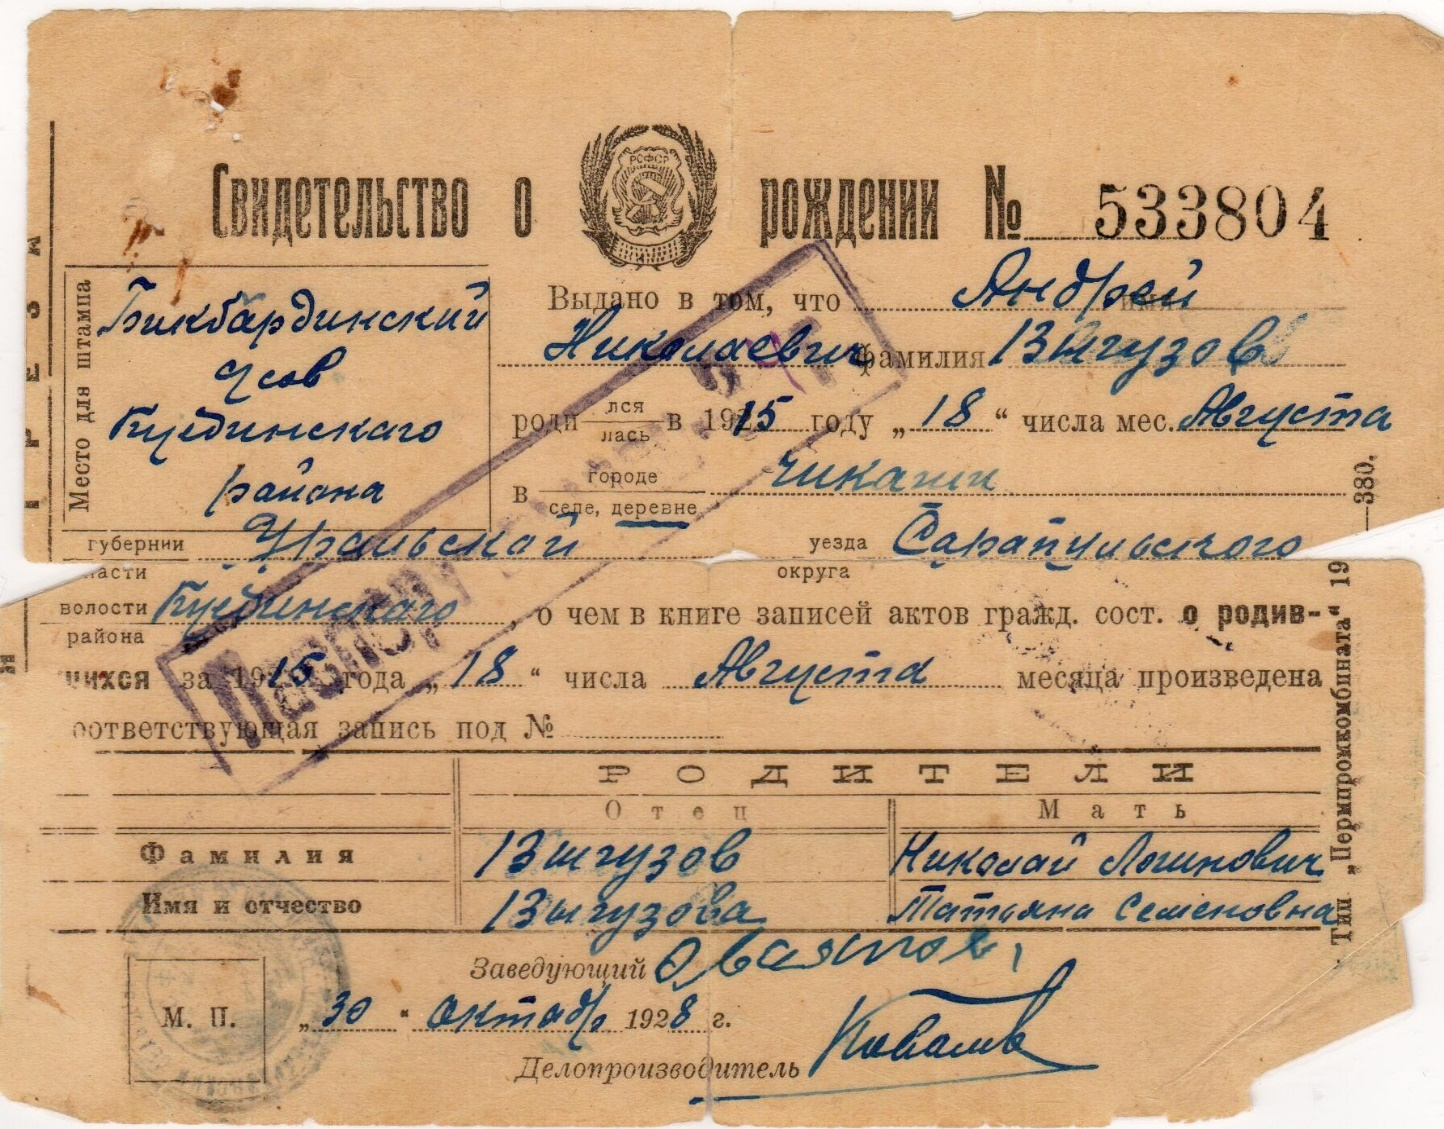 РСФСР
Свидетельство о рождении № 533804
Место для штампа
Бикбардинский
Куединскаго
района
Выдано в том, что Андрей имя
Николаевич фамилия Взыгузов
роди лся лась в 1915 году „18“ числа мес. Августа
в городе селе, деревне
губернии Уральской уезда Сарапульского
области округа
волости Куединскаго, о чем в книге записей актов гражд. сост. о родив-
района
шихся за 1915 года „18“ числа Августа месяца произведена
соответствующая запись под №
РОДИТЕЛИ
Отец Мать
Фамилия Взыгузов Николай Логинович
Имя и отчество Взыгузова Татьяна Семеновна
Заведующий
М. П. „30“ октабр 1928 г.
Делопроизводитель
Паспорт
Тип „Пермпромкомбината“ 19
380.